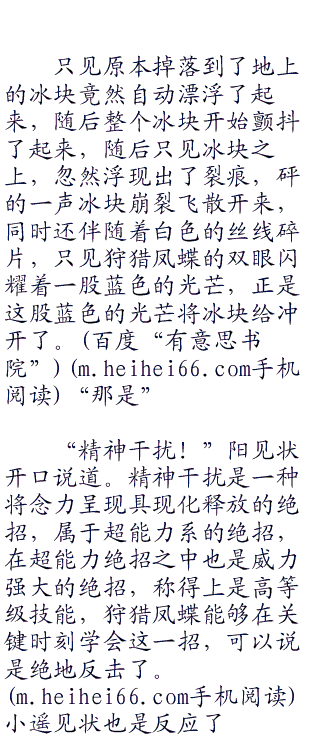 只见原本掉落到了地上
的冰块竟然自动漂浮了起
来，随后整个冰块开始颤抖
了起来，随后只见冰块之
上，忽然浮现出了裂痕，砰
的一声冰块崩裂飞散开来，
同时还伴随着白色的丝线碎
片，只见狩猎凤蝶的双眼闪
耀着一股蓝色的光芒，正是
这股蓝色的光芒将冰块给冲
开了。(百度“有意思书
院”)(m.heihei66.com手机
阅读)“那是”
“精神干扰！”阳见状
开口说道。精神干扰是一种
将念力呈现具现化释放的绝
招，属于超能力系的绝招，
在超能力绝招之中也是威力
强大的绝招，称得上是高等
级技能，狩猎凤蝶能够在关
键时刻学会这一招，可以说
是绝地反击了。
(m.heihei66.com手机阅读)
小遥见状也是反应了